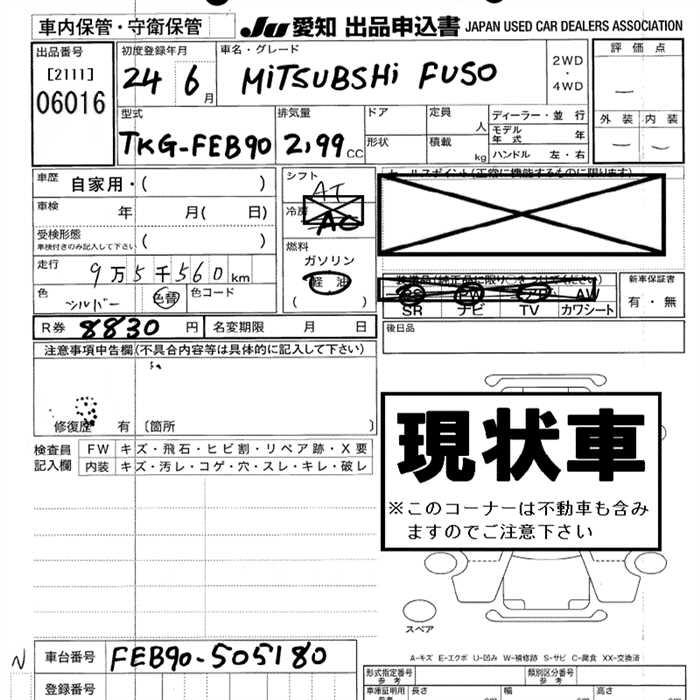 車内保管・守衛保管 JU 愛知 出品申込書 JAPAN USED CAR DEALERS ASSOCIATION
出品番号 初度登録年月 車名・グレード 2WD・4WD 評価点
[2111] 24 6月 MiTSUBSHi FUSO —
06016
型式 排気量 ドア 定員 人 ディーラー・並行 外装 内装
TKG-FEB90 2,99cc 形状 積載 kg モデル年式 年 — —
ハンドル 左・右
車歴 自家用・( ) シフト AT セールスポイント(正常に機能するものに限ります)
車検 年 月( 日) 冷房 AC
受検形態 ( )
車検付きのみ記入して下さい
燃料
走行 9万5千560km ガソリン
色 シルバー 色替 色コード 軽油 装備品(純正品に限り○をつけてください) 新車保証書
( ) AW 有・無
SR ナビ TV カワシート
R券 8830円 名変期限 月 日 後日品
注意事項申告欄(不具合内容等は具体的に記入して下さい)
修復歴 有 〔箇所 〕
現状車
※このコーナーは不動車も含み
ますのでご注意下さい
検査員 FW キズ・飛石・ヒビ割・リペア跡・X要
記入欄 内装 キズ・汚レ・コゲ・穴・スレ・キレ・破レ
スペア
A-キズ E-エクボ U-凹み W-補修跡 S-サビ C-腐食 XX-交換済
N 車台番号 FEB90-505180
形式指定番号 参考 類別区分番号 参考
登録番号 車庫証明用 参考 長さ cm 幅 cm 高さ cm